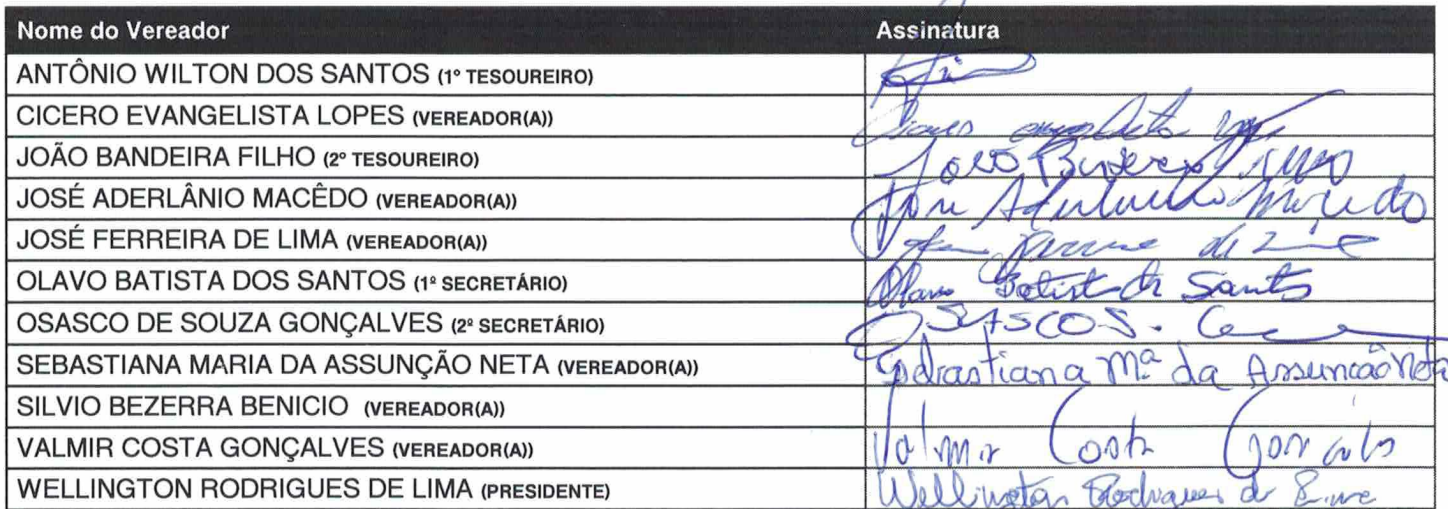 Nome do Vereador Assinatura
ANTÔNIO WILTON DOS SANTOS (1º TESOUREIRO)
CICERO EVANGELISTA LOPES (VEREADOR(A))
JOÃO BANDEIRA FILHO (2º TESOUREIRO) João
JOSÉ ADERLÂNIO MACÊDO (VEREADOR(A)) José Aderlanio Macedo
JOSÉ FERREIRA DE LIMA (VEREADOR(A))
OLAVO BATISTA DOS SANTOS (1º SECRETÁRIO) Olavo Batista dos Santos
OSASCO DE SOUZA GONÇALVES (2º SECRETÁRIO) OSASCO S.
SEBASTIANA MARIA DA ASSUNÇÃO NETA (VEREADOR(A)) Sebastiana Mª da Assunção Neta
SILVIO BEZERRA BENICIO (VEREADOR(A))
VALMIR COSTA GONÇALVES (VEREADOR(A)) Valmir Costa Goncalves
WELLINGTON RODRIGUES DE LIMA (PRESIDENTE) Wellington Rodrigues de Lima